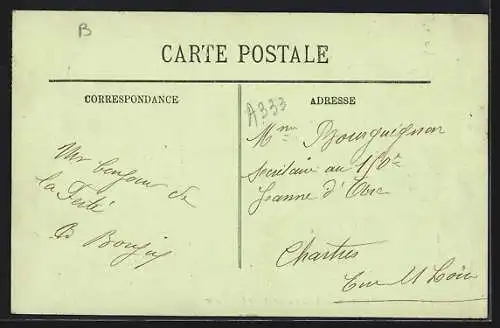 B
CARTE POSTALE
CORRESPONDANCE
Un bonjour de
la Ferté
ADRESSE
A333
Mme Bourguignon
au 150e
Jeanne d'Arc
Chartres
Eure et Loir